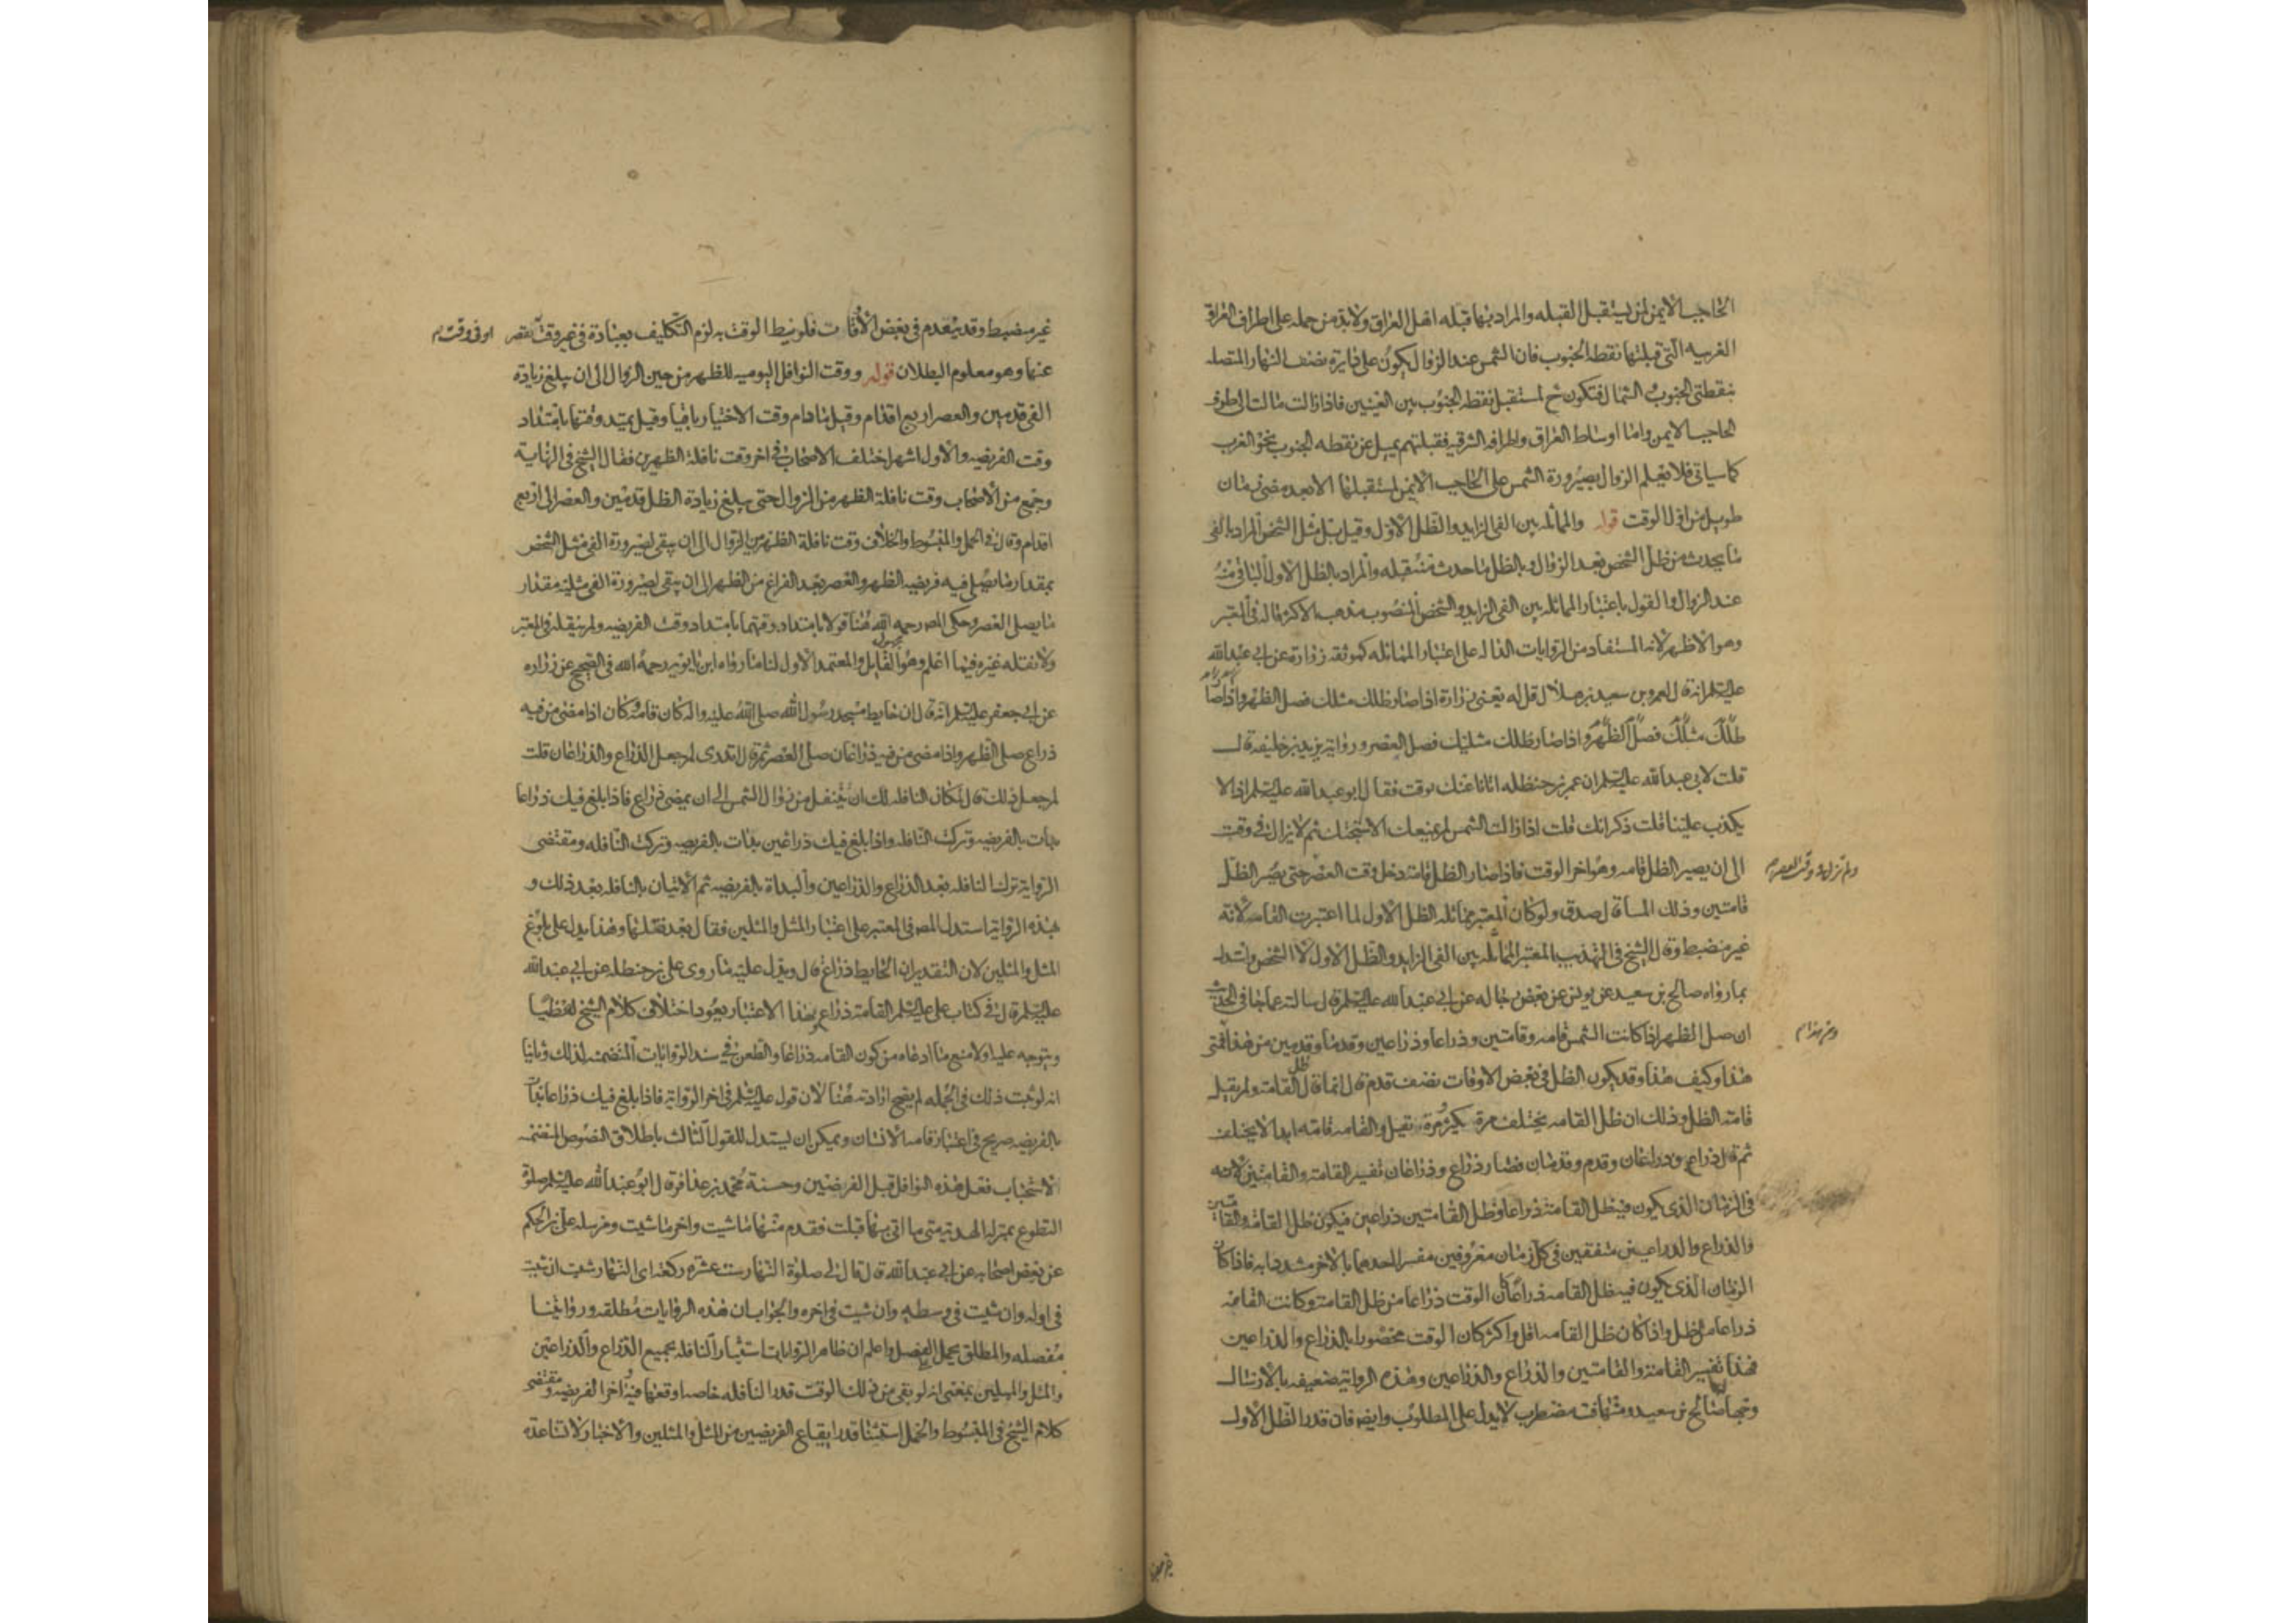 الحاجب الايمن لمن يستقبل القبله والمراد بها قبله اهل العراق ولابد من حمله على اطراف العراق
الغربيه التى قبلتها نقطه الجنوب فان الشمس عند الزوال يكون على دايرة نصف النهار المتصله
بنقطتى الجنوب والشمال فتكون ح لمستقبل نقطه الجنوب بين العينين فاذا زالت مالت الى طرف
الحاجب الايمن واما اوساط العراق واطرافه الشرقيه فقبلتهم يميل عن نقطه الجنوب نحو الغرب
كما سياتى فلا يعلم الزوال بصيرورة الشمس على الحاجب الايمن لمستقبلها الا بعد مضى زمان
طويل من اول الوقت قوله والمماثله بين الفى الزايد والظل الاول وقيل بل مثل الشخص المراد بالفى
ما يحدث من ظل الشخص بعد الزوال وبالظل ما حدث من قبله والمراد بالظل الاول الباقى منه
عند الزوال والقول باعتبار المماثله بين الفى الزايد والشخص المنصوب مذهب الاكثر قاله فى المعتبر
وهو الاظهر لانه المستفاد من الروايات الداله على اعتبار المماثله كموثقه زرارة عن ابى عبدالله
عليه السلم انه قال لعمرو بن سعيد بن هلال قل له يعنى زرارة اذا صار ظلك مثلك فصل الظهر واذا صا
ظلك مثلك فصل الظهر واذا صار ظلك مثليك فصل العصر ورواية يزيد بن خليفة قال
قلت لابى عبدالله عليه السلم ان عمر بن حنظله اتانا عنك بوقت فقال ابو عبدالله عليه السلم اذا لا
يكذب علينا قلت ذكر انك قلت اذا زالت الشمس لم يمنعك الا سبحتك ثم لا يزال فى وقت
الى ان يصير الظل قامه وهو اخر الوقت فاذا صار الظل قامه دخل وقت العصر حتى يصير الظل
ولم تزل فى وقت العصر
قامتين وذلك المسا قال صدق ولو كان المعتبر مماثله الظل الاول لما اعتبرت القامه لانه
غير منضبط وقال الشيخ فى التهذيب المعتبر المماثله بين الفى الزايد والظل الاول لا الشخص واستدل
بما رواه صالح بن سعيد عن يونس عن بعض رجاله عن ابى عبدالله عليه السلم قال سالته عما جا فى الحديث
ان صل الظهر اذا كانت الشمس قامه وقامتين وذراعا وذراعين وقدما وقدمين من هذا فمتى
ومن هذا
هذا وكيف هذا وقد يكون الظل فى بعض الاوقات نصف قدم قال انما قال ظل القامة ولم يقل
قامة الظل وذلك ان ظل القامه يختلف مرة يكثر ومرة يقل والقامه قامه ابدا لا يختلف
ثم قال ذراع وذراعان وقدم وقدمان فصار ذراع وذراعان تفسير القامة والقامتين لانه
فى الزمان الذى يكون فيه ظل القامة ذراعا وظل القامتين ذراعين فيكون ظل القامة والقامتين
والذراع والذراعين متفقين فى كل زمان معروفين مفسر احدهما بالاخر مسددا به فاذا كان
الزمان الذى يكون فيه ظل القامه ذراعا كان الوقت ذراعا من ظل القامة وكانت القامه
ذراعا من الظل واذا كان ظل القامه اقل واكثر كان الوقت محصورا بالذراع والذراعين
فهذا تفسير القامة والقامتين والذراع والذراعين وهذه الرواية ضعيفه بالارسال
وجهاله صالح بن سعيد ومتنها مضطرب لا يدل على المطلوب وايضا فان قدر الظل الاول
غير منضبط
غير منضبط وقد ينعدم فى بعض الاوقات فلو نيط الوقت به لزم التكليف بعبادة فى غير وقت يقصر
او فى وقت
عنها وهو معلوم البطلان قوله ووقت النوافل اليوميه للظهر من حين الزوال الى ان يبلغ زيادة
الفى قدمين والعصر اربع اقدام وقيل ما دام وقت الاختيار باقيا وقيل يمتد وقتها بامتداد
وقت الفريضه والاول اشهر اختلف الاصحاب فى اخر وقت نافلة الظهرين فقال الشيخ فى النهاية
وجمع من الاصحاب وقت نافلة الظهر من الزوال حتى يبلغ زيادة الظل قدمين والعصر الى اربع
اقدام وقال فى الجمل والمبسوط والخلاف وقت نافلة الظهر من الزوال الى ان يبقى لصيرورة الفى مثل الشخص
بمقدار ما يصلى فيه فريضه الظهر والعصر بعد الفراغ من الظهر الى ان يبقى لصيرورة الفى مثليه مقدار
ما يصلى العصر وحكى المصه رحمه الله هنا قولا بامتداد وقتهما بامتداد وقت الفريضه ولم ينقله فى المعتبر
ولا نقله غيره فيما اعلم وهو مجهول القايل والمعتمد الاول لنا ما رواه ابن بابويه رحمه الله فى الصحيح عن زراره
عن ابى جعفر عليه السلم انه قال ان حايط مسجد رسول الله صلى الله عليه واله كان قامة وكان اذا مضى من فيه
ذراع صلى الظهر واذا مضى من فيه ذراعان صلى العصر ثم قال اتدرى لم جعل الذراع والذراعان قلت
لم جعل ذلك قال لمكان النافله لك ان تتنفل من زوال الشمس الى ان يمضى ذراع فاذا بلغ فيك ذراعا
بدات بالفريضه وتركت النافله واذا بلغ فيك ذراعين بدات بالفريضه وتركت النافله ومقتضى
الرواية ترك النافله بعد الذراع والذراعين والبداة بالفريضه ثم الاتيان بالنافله بعد ذلك و
بهذه الرواية استدل المصه فى المعتبر على اعتبار المثل والمثلين فقال بعد نقلها وهذا يدل على بلوغ
المثل والمثلين لان التقدير ان الحايط ذراع قال ويدل عليه ما روى على بن حنظله عن ابى عبدالله
عليه السلم قال فى كتاب على عليه السلم القامة ذراع وبهذا الاعتبار يعود اختلاف كلام الشيخ لفظيا
ويتوجه عليه اولا منع ما ادعاه من كون القامه ذراعا والطعن فى سند الروايات المتضمنه لذلك وثانيا
انه لو ثبت ذلك فى الجمله لم يصح ارادته هنا لان قوله عليه السلم فى اخر الرواية فاذا بلغ فيك ذراعا بدات
بالفريضه صريح فى اعتبار قامه الانسان ويمكن ان يستدل للقول الثالث باطلاق النصوص المتضمنه
لاستحباب فعل هذه النوافل قبل الفرضين وحسنة محمد بن عذافر قال ابو عبدالله عليه السلم صلوة
التطوع بمنزلة الهدية متى ما اتى بها قبلت فقدم منها ما شيت واخر ما شيت ومرسله على بن الحكم
عن بعض اصحابه عن ابى عبدالله قال قال لى صلوة النهار ست عشره ركعه اى النهار شيت ان شيت
فى اوله وان شيت فى وسطه وان شيت فى اخره والجواب ان هذه الروايات مطلقه ورواياتنا
مفصله والمطلق يحمل على المفصل واعلم ان ظاهر الروايات استيثار النافله بجميع الذراع والذراعين
والمثل والمثلين بمعنى انه لو بقى من ذلك الوقت قدر النافله خاصه اوقعها فيه واخر الفريضه ومقتضى
كلام الشيخ فى المبسوط والجمل استثنا قدر ايقاع الفريضين من المثل والمثلين والاخبار لا تساعده